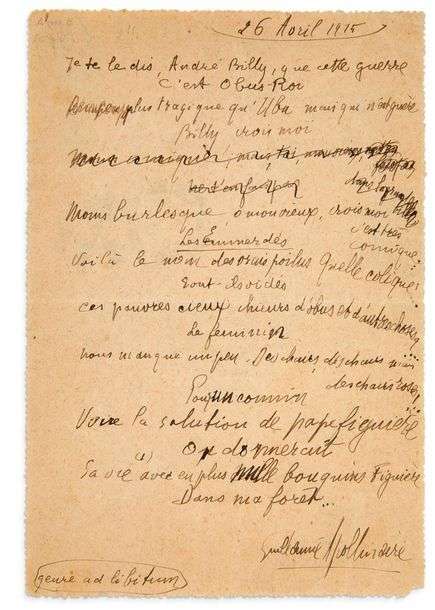 26 Avril 1915
Je te le dis, André Billy, que cette guerre
C'est Obus-Roi
plus tragique qu'Ubu mais qui n'est guère
Billy crois moi
Moins burlesque ô mon vieux, crois moi c'est très
comique
Les Emmerdés
Voilà le nom des vrais poilus Quelle colique
Sont-ils vidés
ces pauvres vieux chieurs d'obus et d'autre chose
Le féminin
nous manque un peu. Des chairs, des chairs mais
des chairs roses
Pour un connin
Voire la solution de pape figuière
On donnerait
Sa vie avec en plus mille bouquins figuière
Dans ma forêt...
Guillaume Apollinaire
genre ad libitum